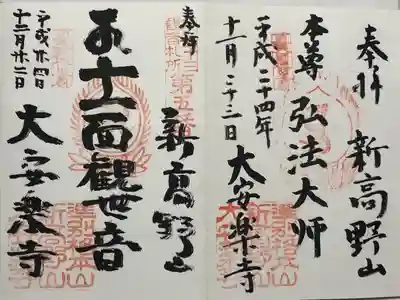 奉拝 新高野山
本尊 弘法大師
平成二十四年
十一月二十三日 大安楽寺
奉拝 新高野山
第五番
十一面観世音
平成廿四年
十二月廿二日 大安楽寺